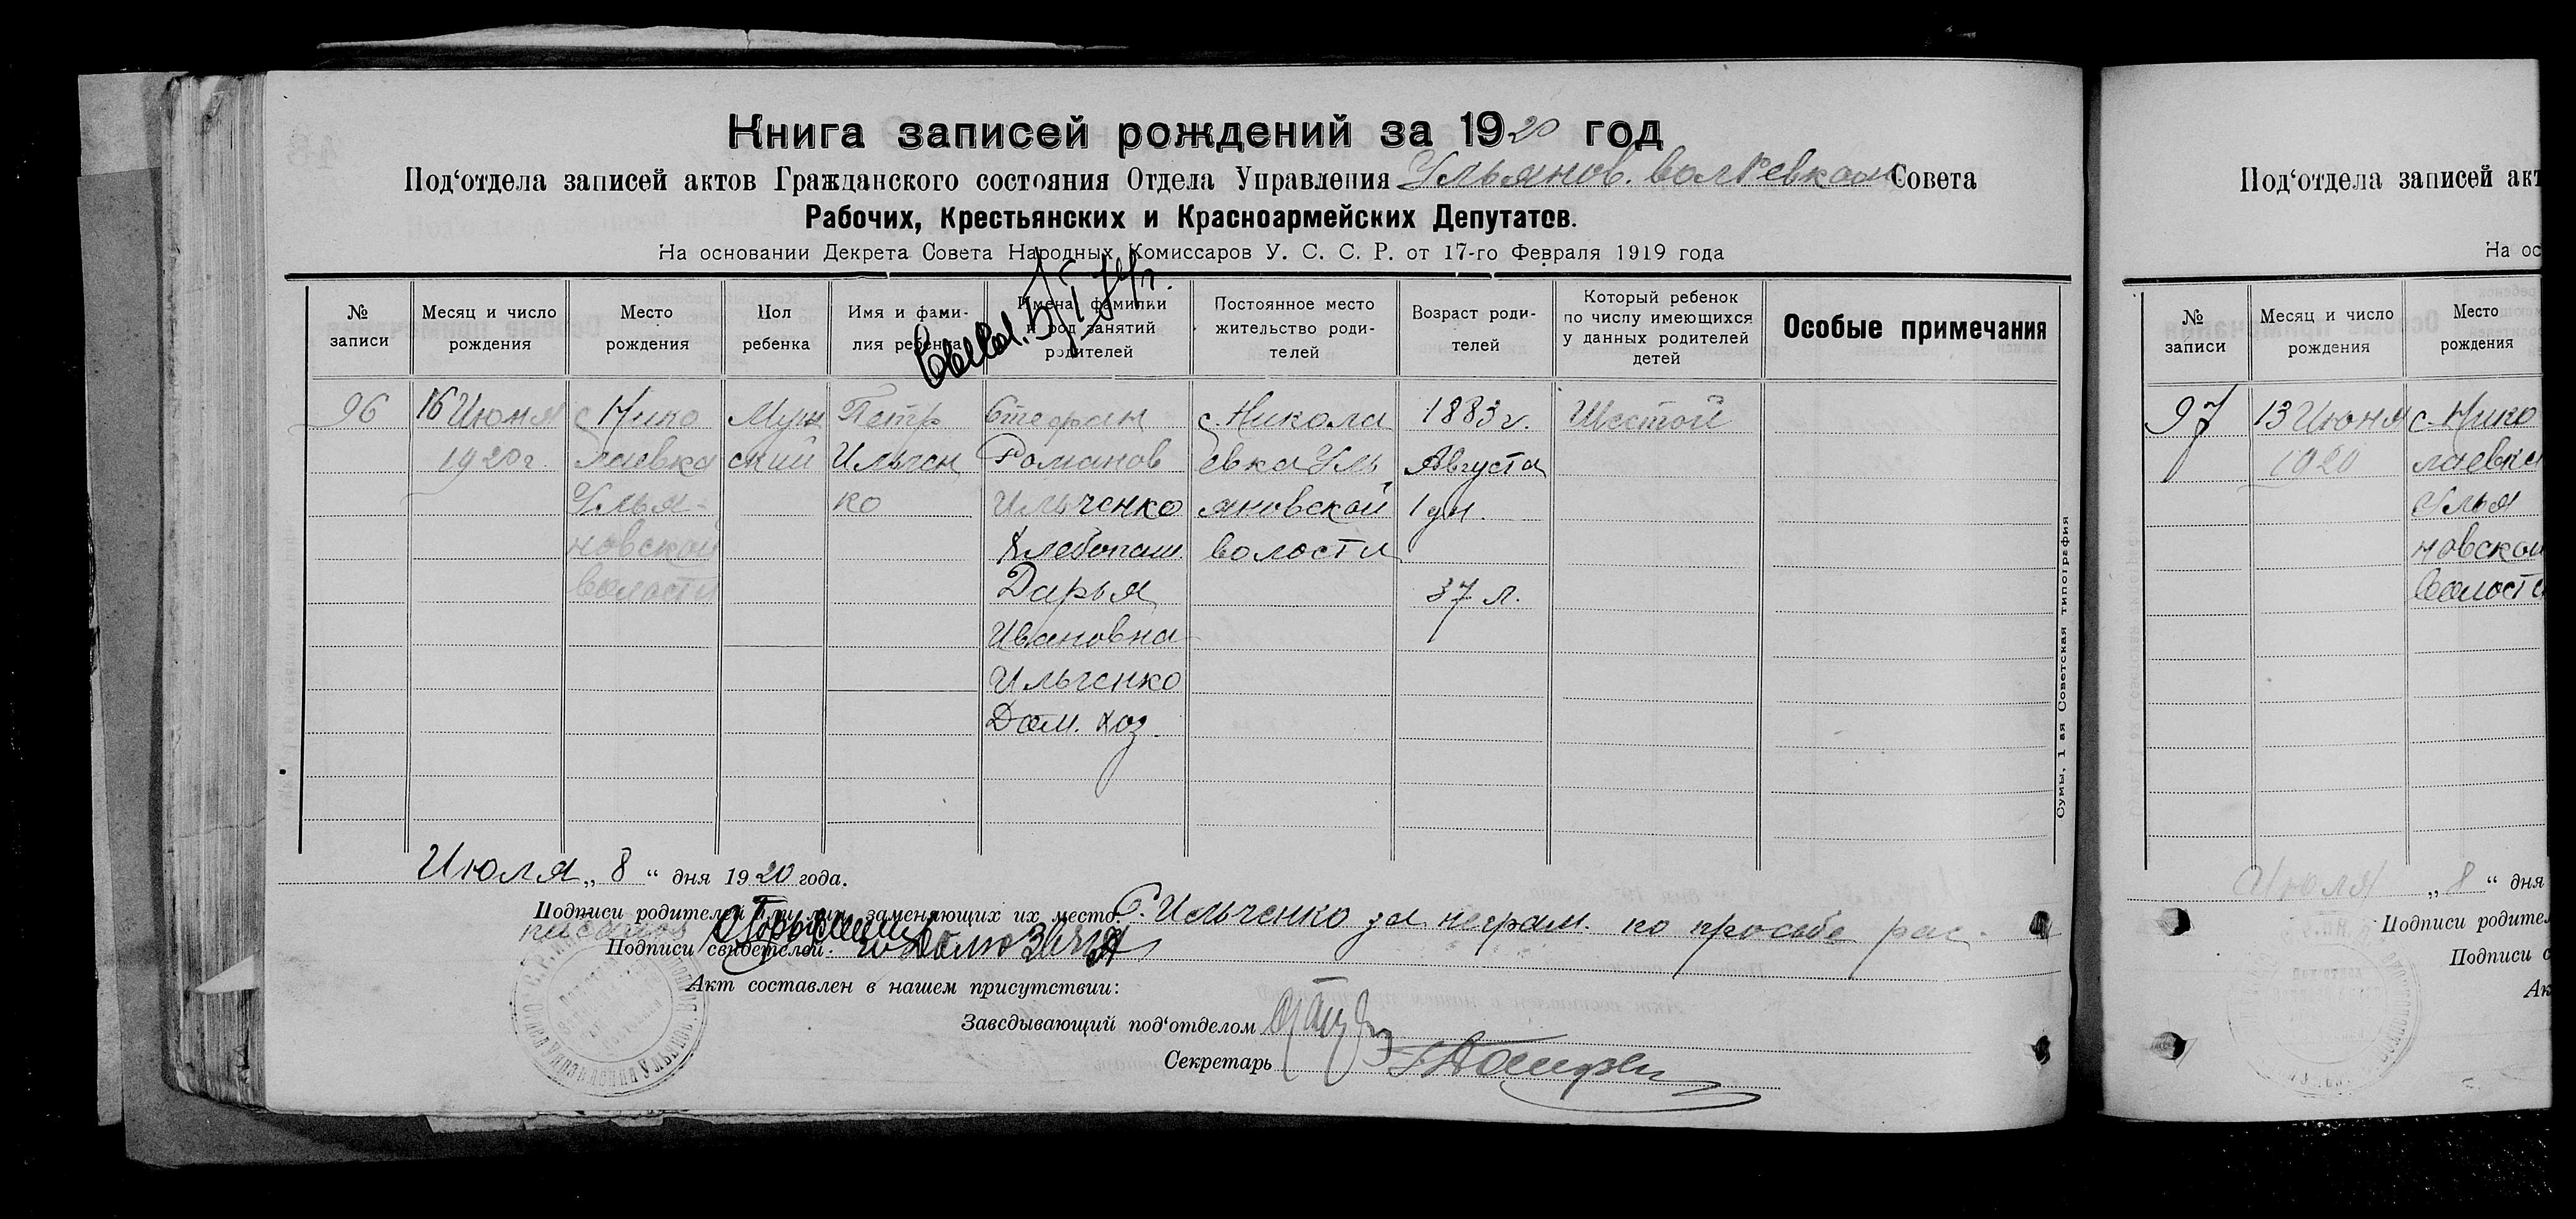 Книга записей рождений за 1920 год
Под‘отдела записей актов Гражданского состояния Отдела Управления Ульянов. волревком Совета
Рабочих, Крестьянских и Красноармейских Депутатов.
На основании Декрета Совета Народных Комиссаров У. С. С. Р. от 17-го Февраля 1919 года
№ записи
Месяц и число рождения
Место рождения
Пол ребенка
Имя и фами-
лия ребенка
Имена, фамилии
и род занятий
родителей
Постоянное место
жительство роди-
телей
Возраст роди-
телей
Который ребенок
по числу имеющихся
у данных родителей
детей
Особые примечания
96 16 Июня с. Нико Муж Петр Стефан с. Никола 1883 г. Шестой
1920 г. лаевка ский Ильчен Романов евка Уль Августа
Улья- ко Ильченко яновской 1 дн.
новской Хлебопаш. волости
волости Дарья 37 л.
Ивановна
Ильченко
Дом. хоз.
Июля „ 8 “ дня 1920 года.
Подписи родителей или лиц, заменяющих их место: С. Ильченко за неграм. по просьбе рас-
Подписи свидетелей:
Акт составлен в нашем присутствии:
Заведывающий под‘отделом
Секретарь
Сумы, 1 ая Советская типография
Под‘отдела записей акт
На ос
№ записи
Месяц и число рождения
Место рождения
97 13 Июня с. Нико
1920 лаевка
Улья
новской
Волости
Июля „ 8 “ дня
Подписи родител
Подписи с
Ак